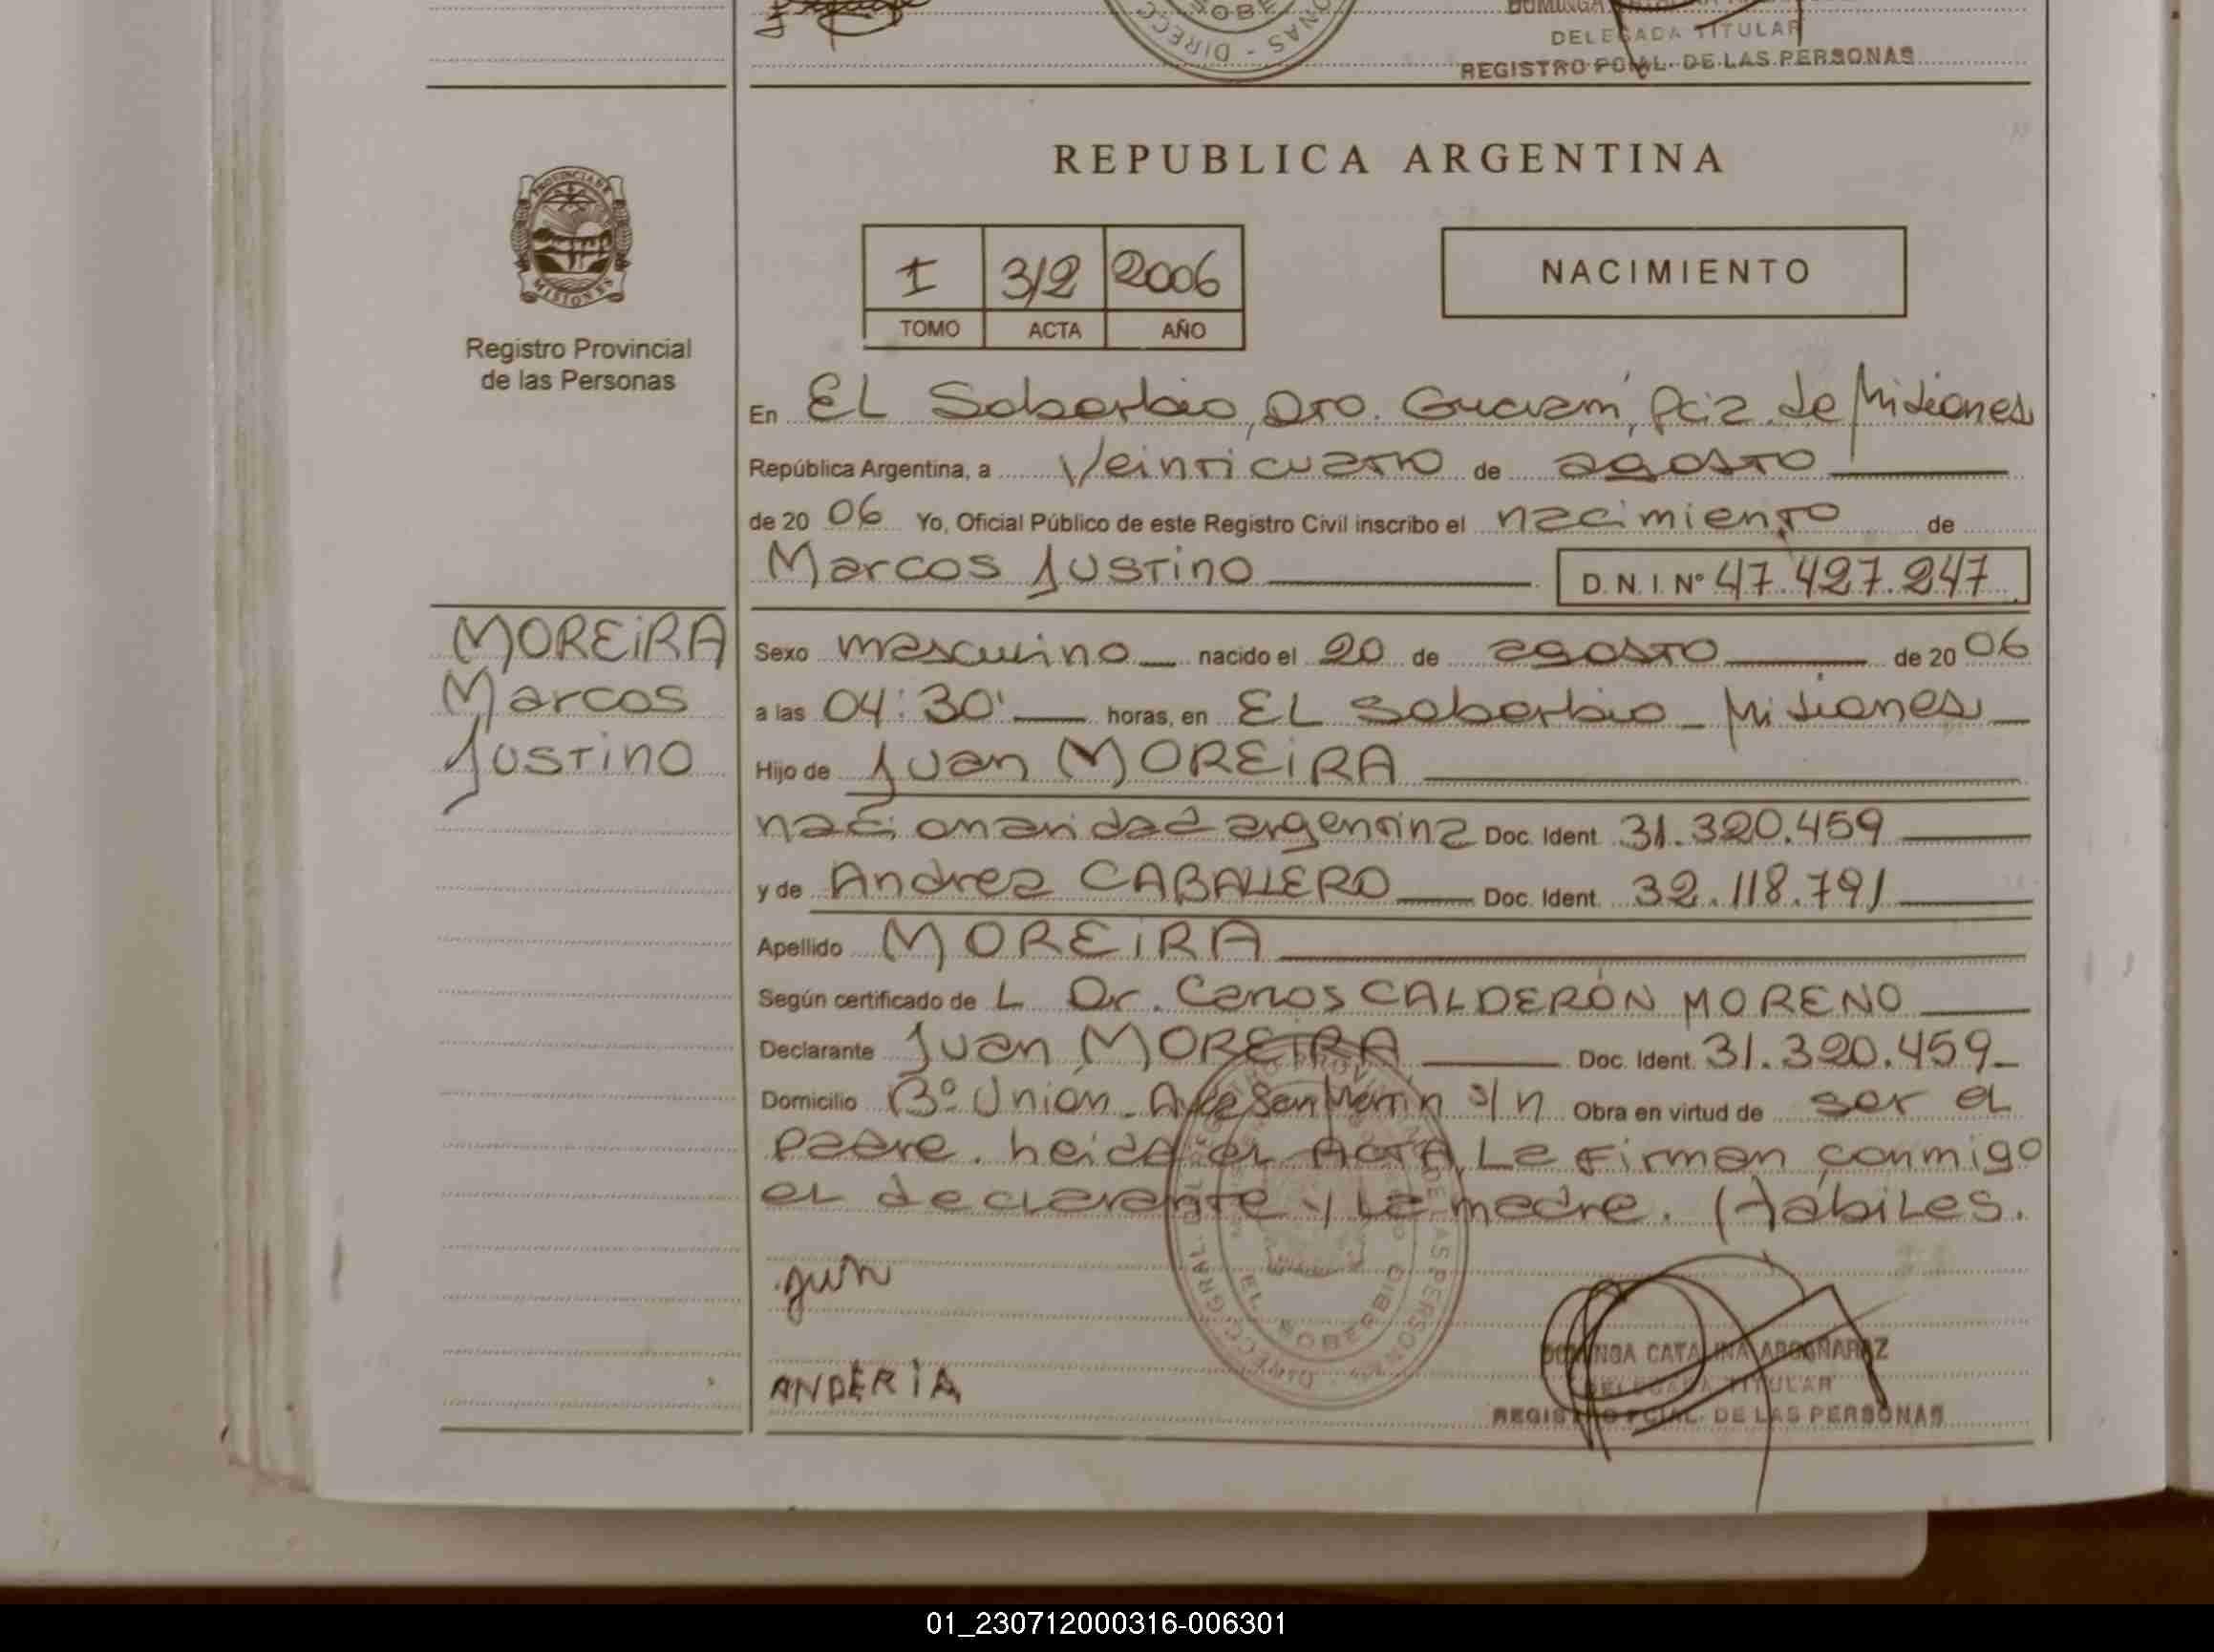 DELEGADA TITULAR
REGISTRO PCIAL. DE LAS PERSONAS
PROVINCIA DE
MISIONES
Registro Provincial
de las Personas
REPUBLICA ARGENTINA
I 312 2006
TOMO ACTA AÑO
NACIMIENTO
En EL Soberbio, Dto. Guaraní, Pcia. de Misiones
República Argentina, a Veinticuatro de agosto
de 2006 Yo, Oficial Público de este Registro Civil inscribo el nacimiento de
Marcos Justino D.N.I. Nº 47.427.247
MOREIRA
Marcos
Justino
Sexo masculino nacido el 20 de agosto de 2006
a las 04:30' horas, en EL Soberbio - Misiones
Hijo de Juan MOREIRA
nacionalidad argentina Doc. Ident. 31.320.459
y de Andrea CABALLERO Doc. Ident. 32.118.791
Apellido MOREIRA
Según certificado de L Dr. Carlos CALDERÓN MORENO
Declarante Juan MOREIRA Doc. Ident. 31.320.459
Domicilio Bº Unión - Avda San Martín s/n Obra en virtud de ser el
padre. Leída el ACTA, La Firman conmigo
el declarante y La madre. Hábiles.
juan
ANDERIA
EL SOBERBIO
DOMINGA CATALINA ARGAÑARAZ
DELEGADA TITULAR
REGISTRO PCIAL. DE LAS PERSONAS
01_230712000316-006301